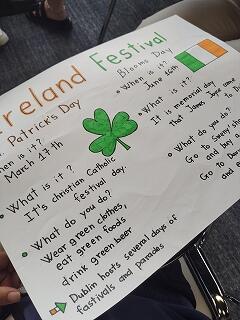 Ireland Festival
Patrick's Day
When is it?
March 17th
• What is it?
It's christian Catholic
festival day.
• What do you do?
Wear green clothes,
eat green foods
drink green beer
Dublin hosts several days of
fastivals and parades
Blooms Day
• When is it?
June 16th
• What is it?
It's memorial day
that James Joyce
• What do you do?
Go to Sweny
Go and
Go to
and